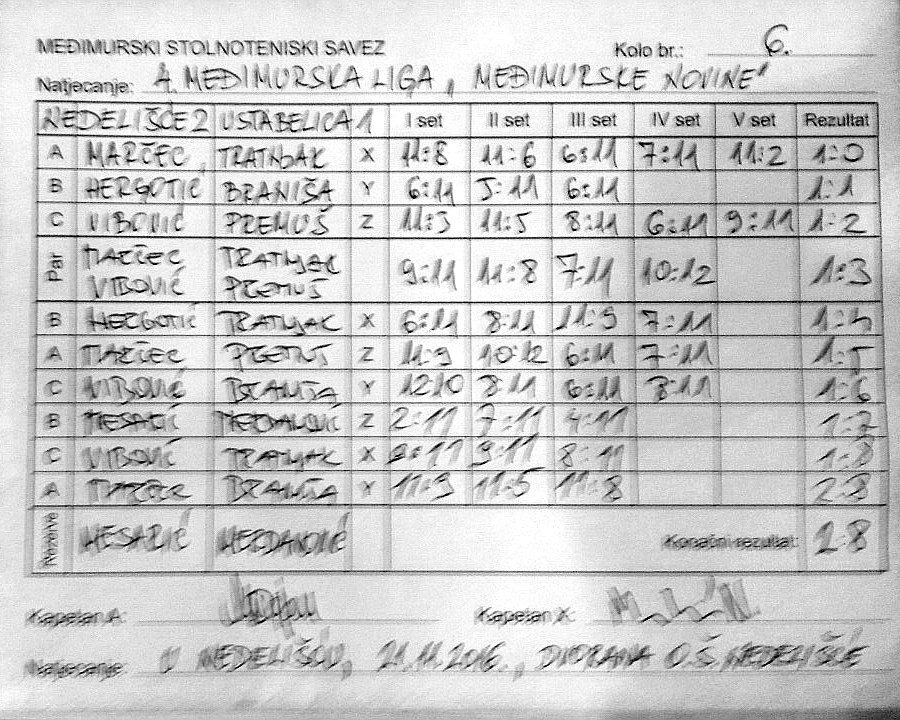 MEĐIMURSKI STOLNOTENISKI SAVEZ
Kolo br.: 6.
Natjecanje: 4. MEĐIMURSKA LIGA „MEĐIMURSKE NOVINE"
NEDELIŠĆE 2 ŠTABELICA 1 I set II set III set IV set V set Rezultat
A MARČEC TRATNJAK X 11:8 11:6 6:11 7:11 11:2 1:0
B HERGOTIĆ BRANIŠA Y 6:11 5:11 6:11 1:1
C VIBOVIĆ PREMUŠ Z 11:3 11:5 8:11 6:11 9:11 1:2
Par MARČEC TRATNJAK 9:11 11:8 7:11 10:12 1:3
VIBOVIĆ PREMUŠ
B HERGOTIĆ TRATNJAK X 6:11 8:11 11:9 7:11 1:4
A MARČEC PREMUŠ Z 11:9 10:12 6:11 7:11 1:5
C VIBOVIĆ BRANIŠA Y 12:10 8:11 6:11 8:11 1:6
B MESARIĆ Z 2:11 7:11 4:11 1:7
C VIBOVIĆ TRATNJAK X 9:11 8:11 1:8
A MARČEC BRANIŠA Y 11:9 11:5 11:8 2:8
Rezerve MESARIĆ Konačni rezultat: 2:8
Kapetan A: Kapetan X:
Natjecanje: U NEDELIŠĆU, 21.11.2016., DVORANA O.Š. NEDELIŠĆE